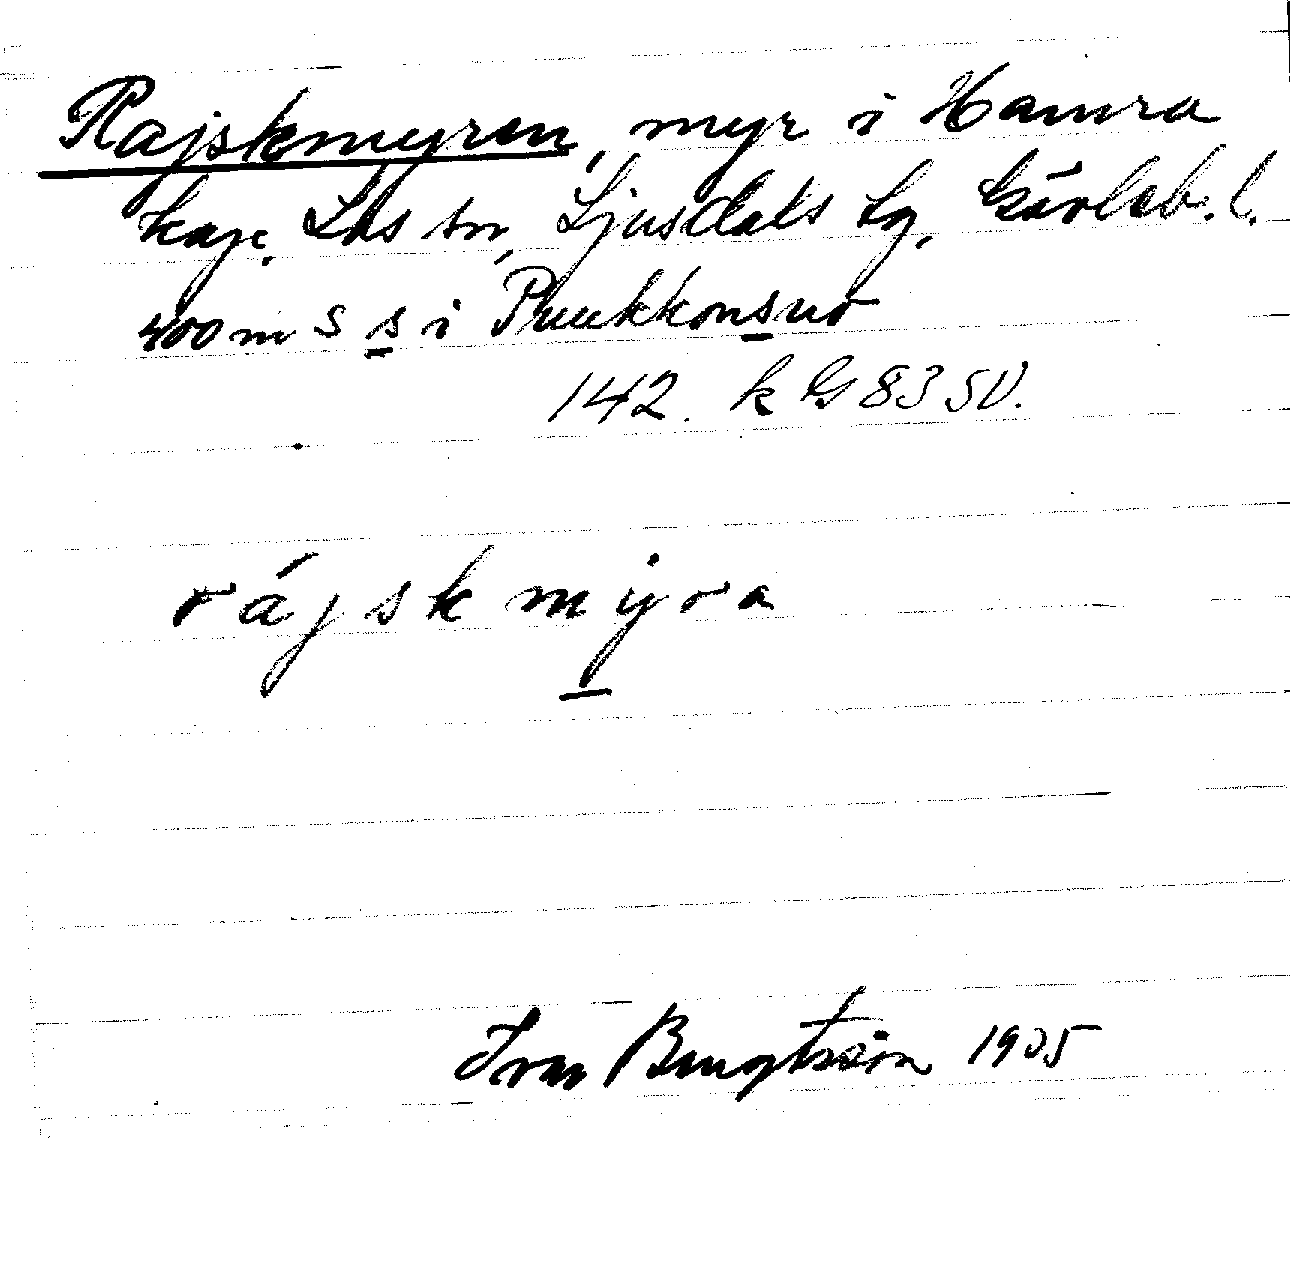 Rajskmyren, myr i Hamra
kap. Los sn, Ljusdals tg, Gävleb. l.
400 m S s i Puukkonsuo
142. k G 83 SV.
rájskmyra
Ivar Bengtsson 1935